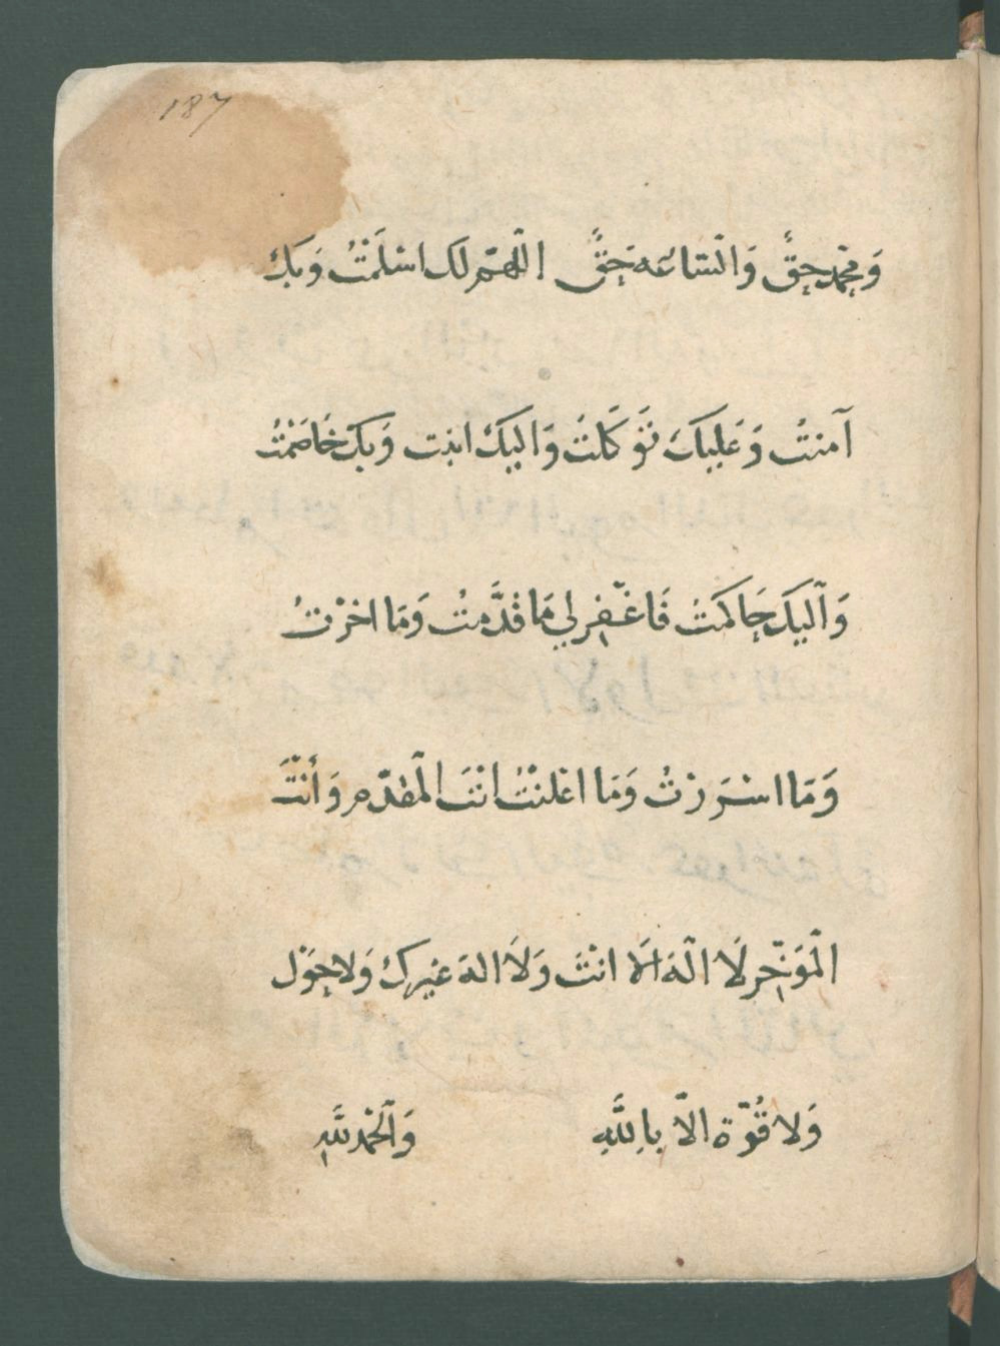 187
وَمحمد حقٌّ وَالسَّاعَة حَقٌّ اللهمّ لَك اسْلَمْتُ وَبِكَ
آمنتُ وَعَلَيكَ تَوَكَّلتُ وَالَيكَ انبت وَبِكَ خَاصَمْتُ
وَالَيكَ حَاكمَتُ فَاغْفِر لي مَا قدَّمتُ وَمَا اخرْتُ
وَمَا اسْرَرْتُ وَمَا اعْلَنْتُ انْتَ المْقدّم وَأنْتَ
المْوَخّر لَا الَهَ الَا انْتَ وَلَا الهَ غيرك وَلا حَوْل
وَلا قُوّة الّا بِاللَّهِ وَالَحْمد للَّهِ